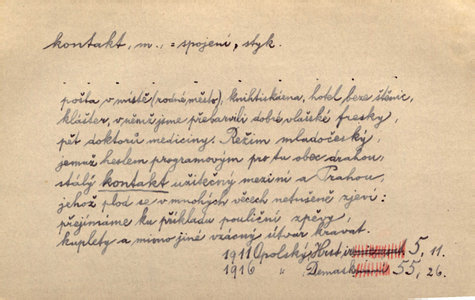 kontakt, m., = spojení, styk.
pošta v místě (rodné město), knihtiskárna, hotel beze štěnic,
klášter, v němž jsme přebarvili dobré vlašské fresky,
pět doktorů mediciny. Režim mladočeský,
jemuž heslem programovým pro tu obec drahou,
stálý kontakt užitečný mezi ní a Prahou,
jehož plod se v mnohých věcech netušeně zjeví:
přejímáme ku příkladu pouliční zpěvy,
kuplety a mimo jiné vzácný útvar kravat.
1911 Opolský, Hust 5, 11.
1916 " Demask 55, 26.